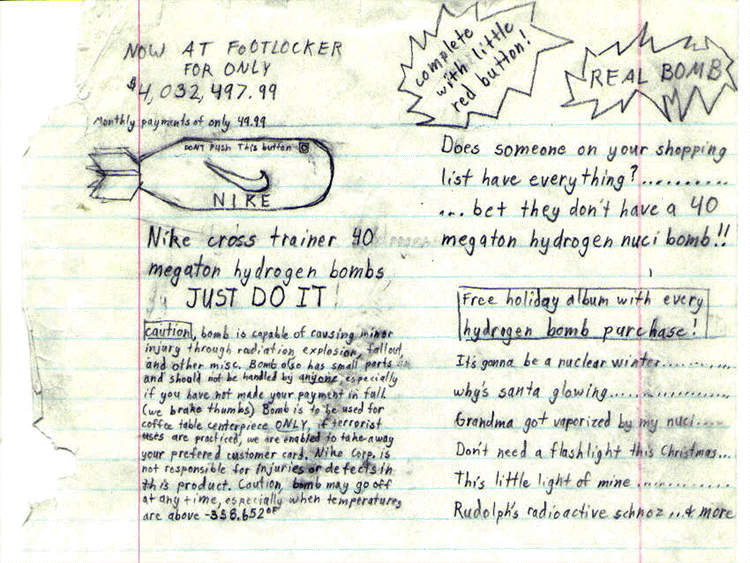 NOW AT FOOTLOCKER
FOR ONLY
$4,032,497.99
Monthly payments of only 49.99
DON'T PUSH This button
NIKE
Nike cross trainer 40
megaton hydrogen bombs
JUST DO IT!
caution, bomb is capable of causing minor
injury through radiation explosion, fallout,
and other misc. Bomb also has small parts
and should not be handled by anyone, especially
if you have not made your payment in full
(we brake thumbs) Bomb is to be used for
coffee table centerpiece ONLY, if terrorist
uses are practiced, we are enabled to take away
your prefered customer card. Nike Corp. is
not responsible for injuries or defects in
this product. Caution, bomb may go off
at any time, especially when temperatures
are above -358.652°F
complete
with little
red button!
REAL BOMB
Does someone on your shopping
list have everything?..........
... bet they don't have a 40
megaton hydrogen nuci bomb!!
Free holiday album with every
hydrogen bomb purchase!
It's gonna be a nuclear winter...........
why's santa glowing..................
Grandma got vaporized by my nuci....
Don't need a flashlight this Christmas...
This little light of mine ..............
Rudolph's radioactive schnoz ...& more